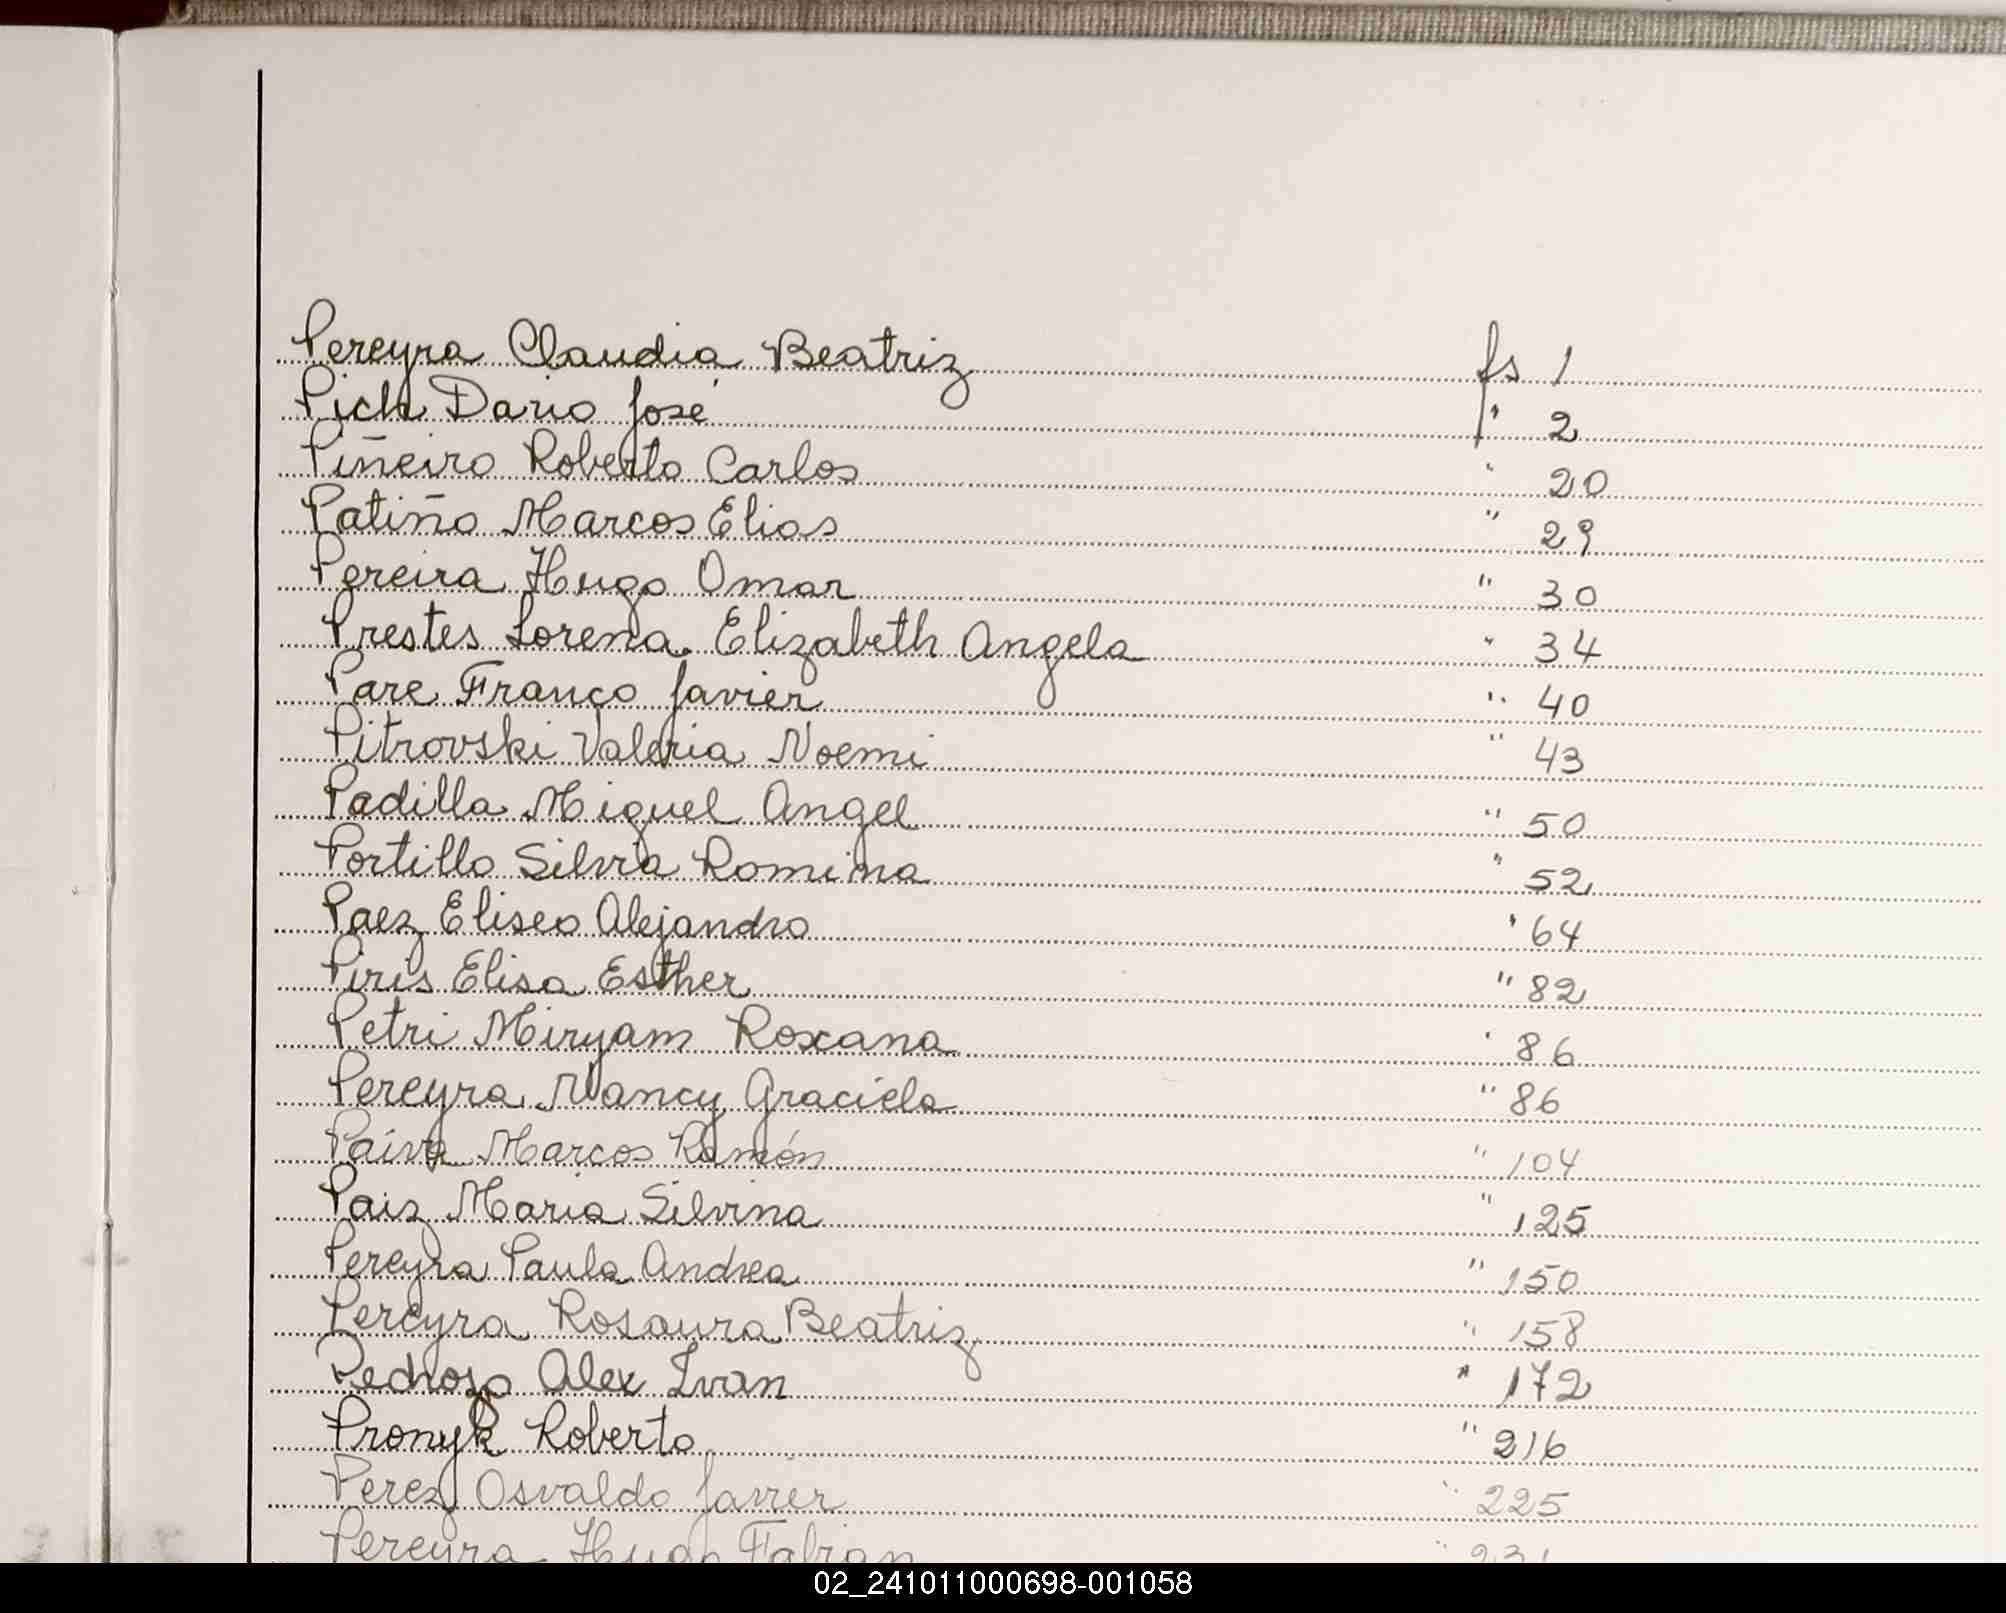 Pereyra Claudia Beatriz fs 1
Pich Dario José " 2
Piñeiro Roberto Carlos " 20
Patiño Marcos Elias " 29
Pereira Hugo Omar " 30
Prestes Lorena Elizabeth Angela " 34
Pare Franco Javier " 40
Pitrovski Valeria Noemi " 43
Padilla Miguel Angel " 50
Portillo Silvia Romina " 52
Paez Eliseo Alejandro " 64
Piris Elisa Esther " 82
Petri Miryam Roxana " 86
Pereyra Nancy Graciela " 86
Paiva Marcos Ramón " 104
Paiz Maria Silvina " 125
Pereyra Paula Andrea " 150
Pereyra Rosaura Beatriz " 158
Pedrozo Alex Ivan " 172
Pronyk Roberto " 216
Perez Osvaldo Javier " 225
Pereyra Hugo Fabian " 231
02_241011000698-001058